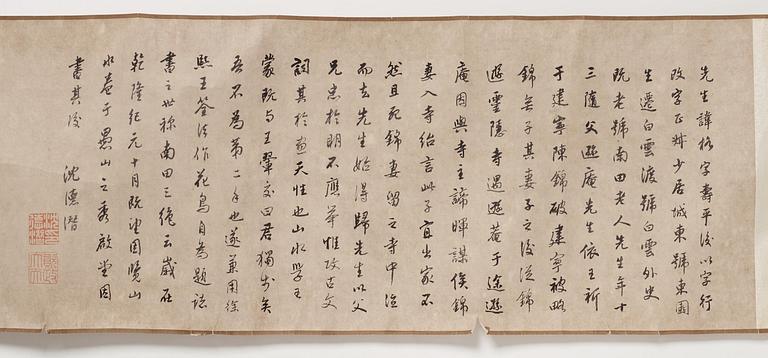 先生諱格字壽平後以字行
改字正叔少居城東號東園
生遷白雲渡號白雲外史
既老號南田老人先生年十
三隨父遜庵先生依王祈
于建寧陳錦破建寧被略
錦無子其妻子之後從錦
遊靈隱寺遇遜菴于途遜
庵因與寺主諦暉謀俟錦
妻入寺紿言此子宜出家不
然且死錦妻留之寺中泣
而去先生始得歸先生以父
兄忠於明不應舉惟攻古文
詞其於畫天性也山水學王
蒙既與王翬交曰君獨步矣
吾不為第二手也遂兼用徐
熙王筌法作花鳥自為題誌
書之世稱南田三絕云歲在
乾隆紀元十月既望因覽山
水卷于愚山之秀啟堂因
書其後 沈德潛